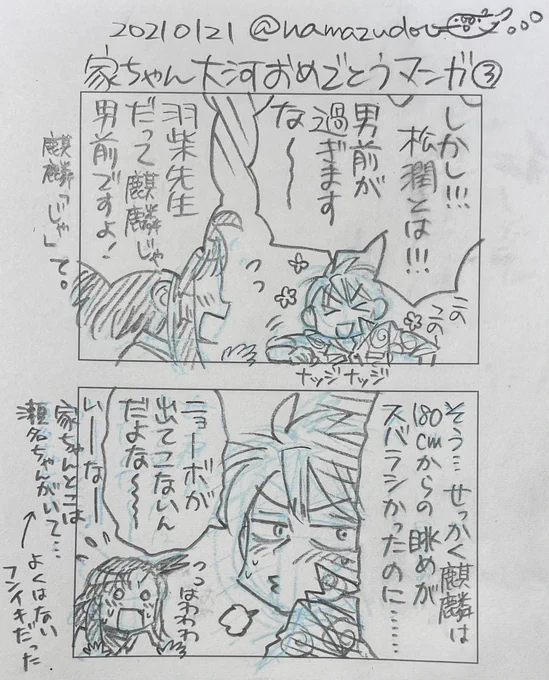 20210121 @namazudou
家ちゃん大河おめでとうマンガ③
しかし!!!
松潤とは!!!
男前が
過ぎます
な〜〜
このこの
羽柴先生
だって麒麟じゃ
男前ですよ!
麒麟「じゃ」て。
ナッジナッジ
そう…せっかく麒麟は
180cmからの眺めが
スバラシかったのに……
ニョーボが
出てこないん
だよな〜〜
はわわわ
家ちゃんとこは
瀬名ちゃんがいて…
いーなー
←よくはない
フンイキだった